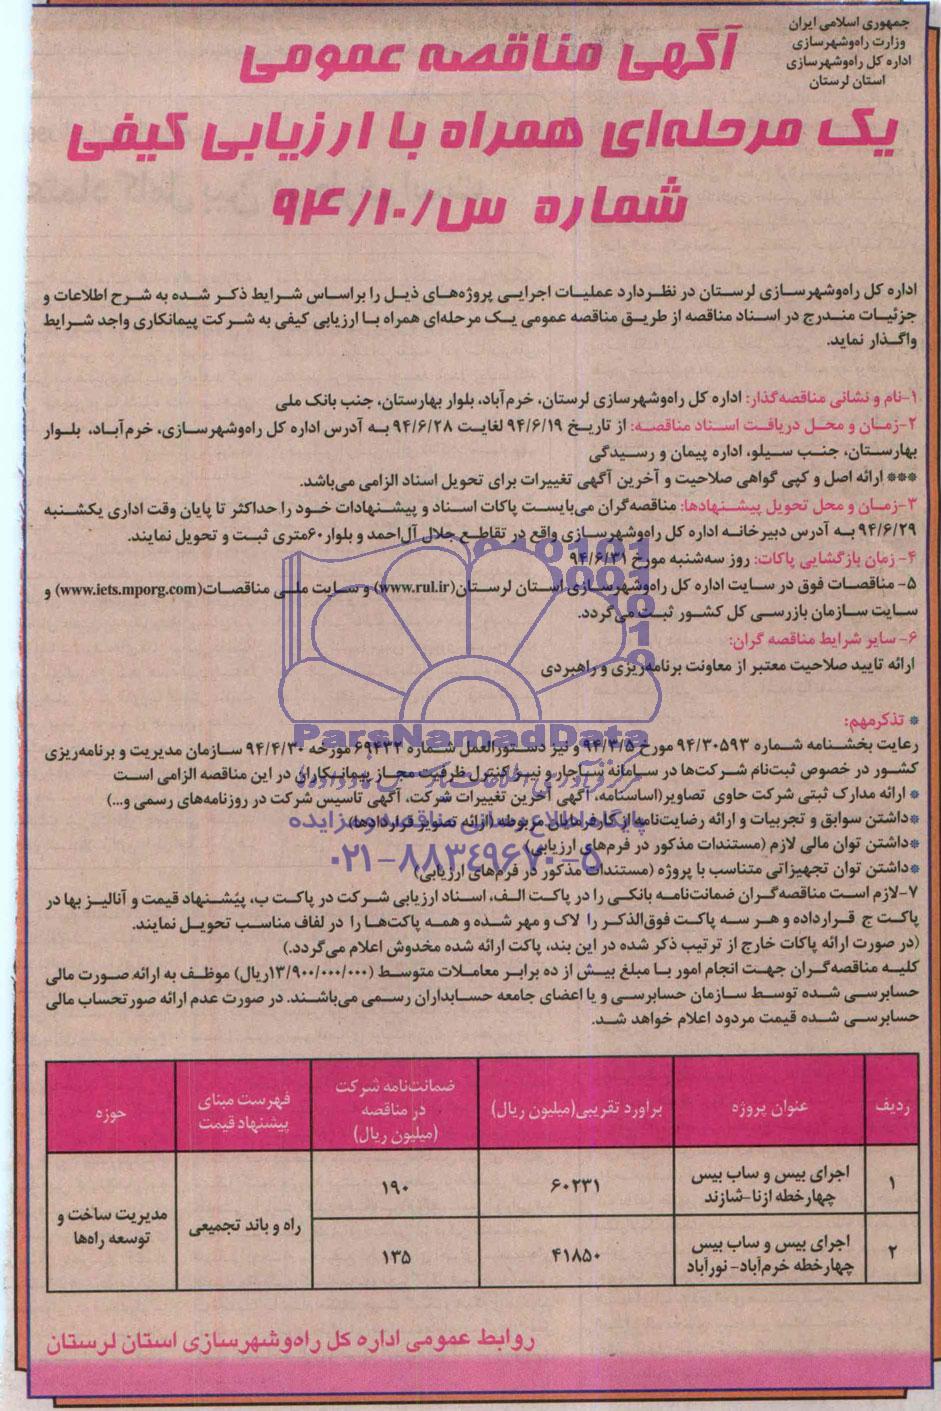 جمهوری اسلامی ایران
وزارت راه‌وشهرسازی
اداره کل راه‌وشهرسازی
استان لرستان
آگهی مناقصه عمومی
یک مرحله‌ای همراه با ارزیابی کیفی
شماره س/۹۴/۱۰
اداره کل راه‌وشهرسازی لرستان در نظر دارد عملیات اجرایی پروژه‌های ذیل را براساس شرایط ذکر شده به شرح اطلاعات و
جزئیات مندرج در اسناد مناقصه از طریق مناقصه عمومی یک مرحله‌ای همراه با ارزیابی کیفی به شرکت پیمانکاری واجد شرایط
واگذار نماید.
۱-نام و نشانی مناقصه‌گذار: اداره کل راه‌وشهرسازی لرستان، خرم‌آباد، بلوار بهارستان، جنب بانک ملی
۲-زمان و محل دریافت اسناد مناقصه: از تاریخ ۹۴/۶/۱۹ لغایت ۹۴/۶/۲۸ به آدرس اداره کل راه‌وشهرسازی، خرم‌آباد، بلوار
بهارستان، جنب سیلو، اداره پیمان و رسیدگی
*** ارائه اصل و کپی گواهی صلاحیت و آخرین آگهی تغییرات برای تحویل اسناد الزامی می‌باشد.
۳-زمان و محل تحویل پیشنهادها: مناقصه‌گران می‌بایست پاکات اسناد و پیشنهادات خود را حداکثر تا پایان وقت اداری یکشنبه
۹۴/۶/۲۹ به آدرس دبیرخانه اداره کل راه‌وشهرسازی واقع در تقاطع جلال آل‌احمد و بلوار ۶۰متری ثبت و تحویل نمایند.
۴- زمان بازگشایی پاکات: روز سه‌شنبه مورخ ۹۴/۶/۳۱
۵- مناقصات فوق در سایت اداره کل راه‌وشهرسازی استان لرستان(www.rul.ir) و سایت ملی مناقصات(www.iets.mporg.com) و
سایت سازمان بازرسی کل کشور ثبت می‌گردد.
۶- سایر شرایط مناقصه گران:
ارائه تایید صلاحیت معتبر از معاونت برنامه‌ریزی و راهبردی
ParsNamadData
* تذکر مهم:
رعایت بخشنامه شماره ۹۴/۳۰۵۹۳ مورخ ۹۴/۳/۵ و نیز دستورالعمل شماره ۶۹۴۳۲ مورخه ۹۴/۴/۳۰ سازمان مدیریت و برنامه‌ریزی
کشور در خصوص ثبت‌نام شرکت‌ها در سامانه ساجار و نیز کنترل ظرفیت مجاز پیمانکاران در این مناقصه الزامی است
* ارائه مدارک ثبتی شرکت حاوی تصاویر(اساسنامه، آگهی آخرین تغییرات شرکت، آگهی تاسیس شرکت در روزنامه‌های رسمی و...)
*داشتن سوابق و تجربیات و ارائه رضایت‌نامه از کارفرمایان مربوطه (ارائه تصویر قراردادها)
پایگاه اطلاع رسانی مناقصه و مزایده
*داشتن توان مالی لازم (مستندات مذکور در فرم‌های ارزیابی)
۰۲۱-۸۸۳۴۹۶۷۰-۵
*داشتن توان تجهیزاتی متناسب با پروژه (مستندات مذکور در فرم‌های ارزیابی)
۷-لازم است مناقصه‌گران ضمانت‌نامه بانکی را در پاکت الف، اسناد ارزیابی شرکت در پاکت ب، پیشنهاد قیمت و آنالیز بها در
پاکت ج قرار داده و هر سه پاکت فوق‌الذکر را لاک و مهر شده و همه پاکت‌ها را در لفاف مناسب تحویل نمایند.
(در صورت ارائه پاکات خارج از ترتیب ذکر شده در این بند، پاکت ارائه شده مخدوش اعلام می‌گردد.)
کلیه مناقصه‌گران جهت انجام امور با مبلغ بیش از ده برابر معاملات متوسط (۱۳/۹۰۰/۰۰۰/۰۰۰ریال) موظف به ارائه صورت مالی
حسابرسی شده توسط سازمان حسابرسی و یا اعضای جامعه حسابداران رسمی می‌باشند. در صورت عدم ارائه صورتحساب مالی
حسابرسی شده قیمت مردود اعلام خواهد شد.
ردیف | عنوان پروژه | براورد تقریبی(میلیون ریال) | ضمانت‌نامه شرکت در مناقصه (میلیون ریال) | فهرست مبنای پیشنهاد قیمت | حوزه
۱ | اجرای بیس و ساب بیس چهارخطه ازنا-شازند | ۶۰۲۳۱ | ۱۹۰ | راه و باند تجمیعی | مدیریت ساخت و توسعه راه‌ها
۲ | اجرای بیس و ساب بیس چهارخطه خرم‌آباد- نورآباد | ۴۱۸۵۰ | ۱۳۵
روابط عمومی اداره کل راه‌وشهرسازی استان لرستان